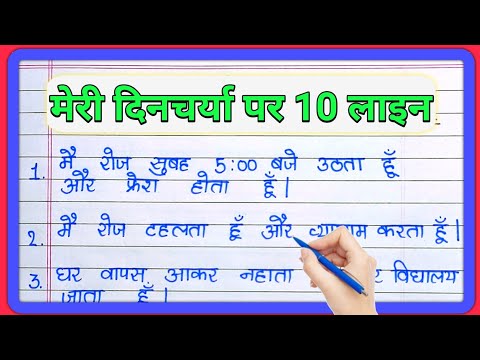 मेरी दिनचर्या पर 10 लाइन
1. मै रोज सुबह 5:00 बजे उठता हूँ
और फ्रेश होता हूँ|
2. मै रोज टहलता हूँ और व्यायाम करता हूँ|
3. घर वापस आकर नहाता विद्यालय
जाता हूँ|